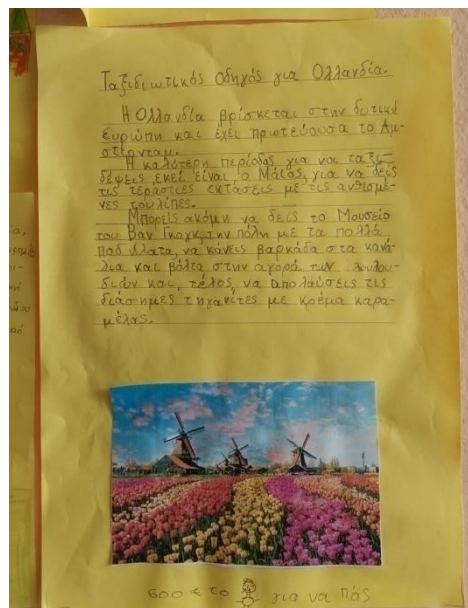 Ταξιδιωτικός Οδηγός για Ολλανδία.
Η Ολλανδία βρίσκεται στην δυτική
Ευρώπη και έχει πρωτεύουσα το Άμ-
στερνταμ.
Η καλύτερη περίοδος για να ταξι-
δέψεις εκεί είναι ο Μάιος, για να δεις
τις τεράστιες εκτάσεις με τις ανθισμέ-
νες τουλίπες.
Μπορείς ακόμη να δεις το Μουσείο
του Βαν Γκογκ, την πόλη με τα πολλά
ποδήλατα, να κάνεις βαρκάδα στα κανά-
λια και βόλτα στην αγορά των λουλου-
διών και, τέλος, να απολαύσεις τις
διάσημες τηγανίτες με κρέμα καρα-
μέλας.
600 € το για να πας